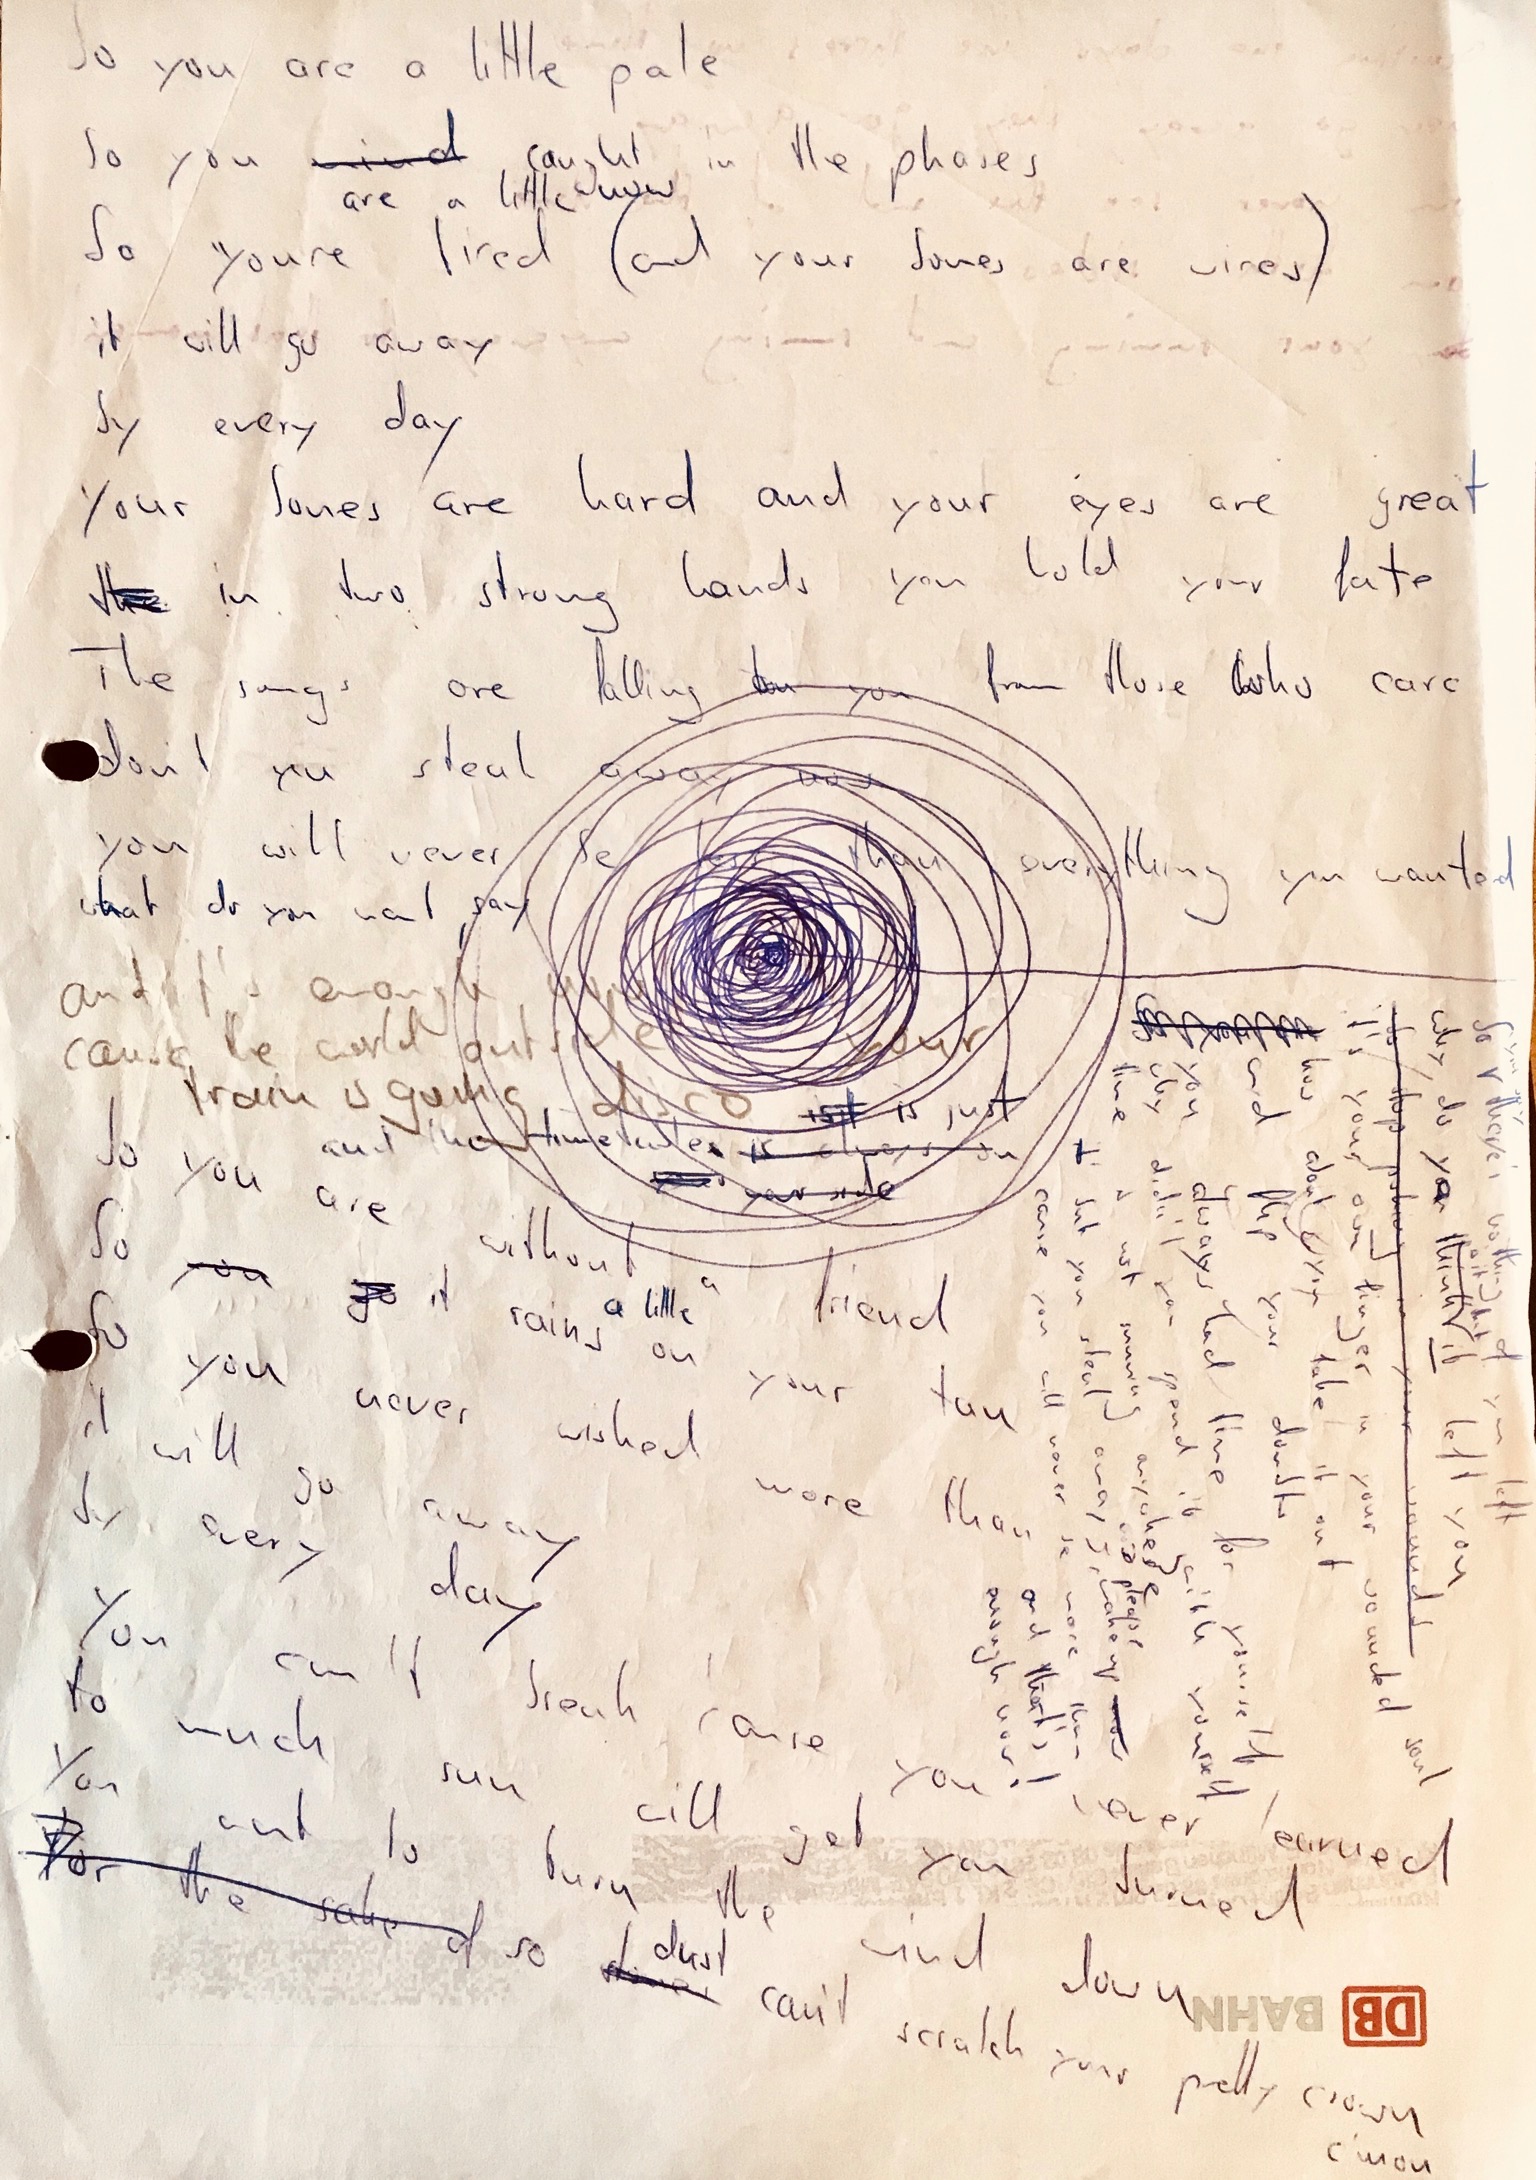 So you are a little pale
So you wind caught in the phases
are a little now
So you're tired (and your bones are wires)
it will go away
by every day
Your bones are hard and your eyes are great
the in two strong hands you hold your fate
The songs are falling on you from those who care
don't you steal away now
you will never be than everything you wanted
what do you want say
and it's enough now
cause the world outside your
train is going disco
and the timetables is always on is it is just
your side
So you are without a friend
So you go it rains a little on your tan
So you never wished more than
it will go away
by every day
You can't break 'cause you never learned
to much sun will get you burned
You want to turn the wind down
For the sake of so dust can't scratch your pretty crown
c'mon
DB BAHN
So there's nothing of you left
why do you think it left you
it's your own finger in your wounded soul
how about you take it out
and flip your doubts
you always had time for yourself
why didn't you spend it with yourself
time is not money anyone please
don't you steal away, wake up now
cause you will never be more than
and that's
enough now!